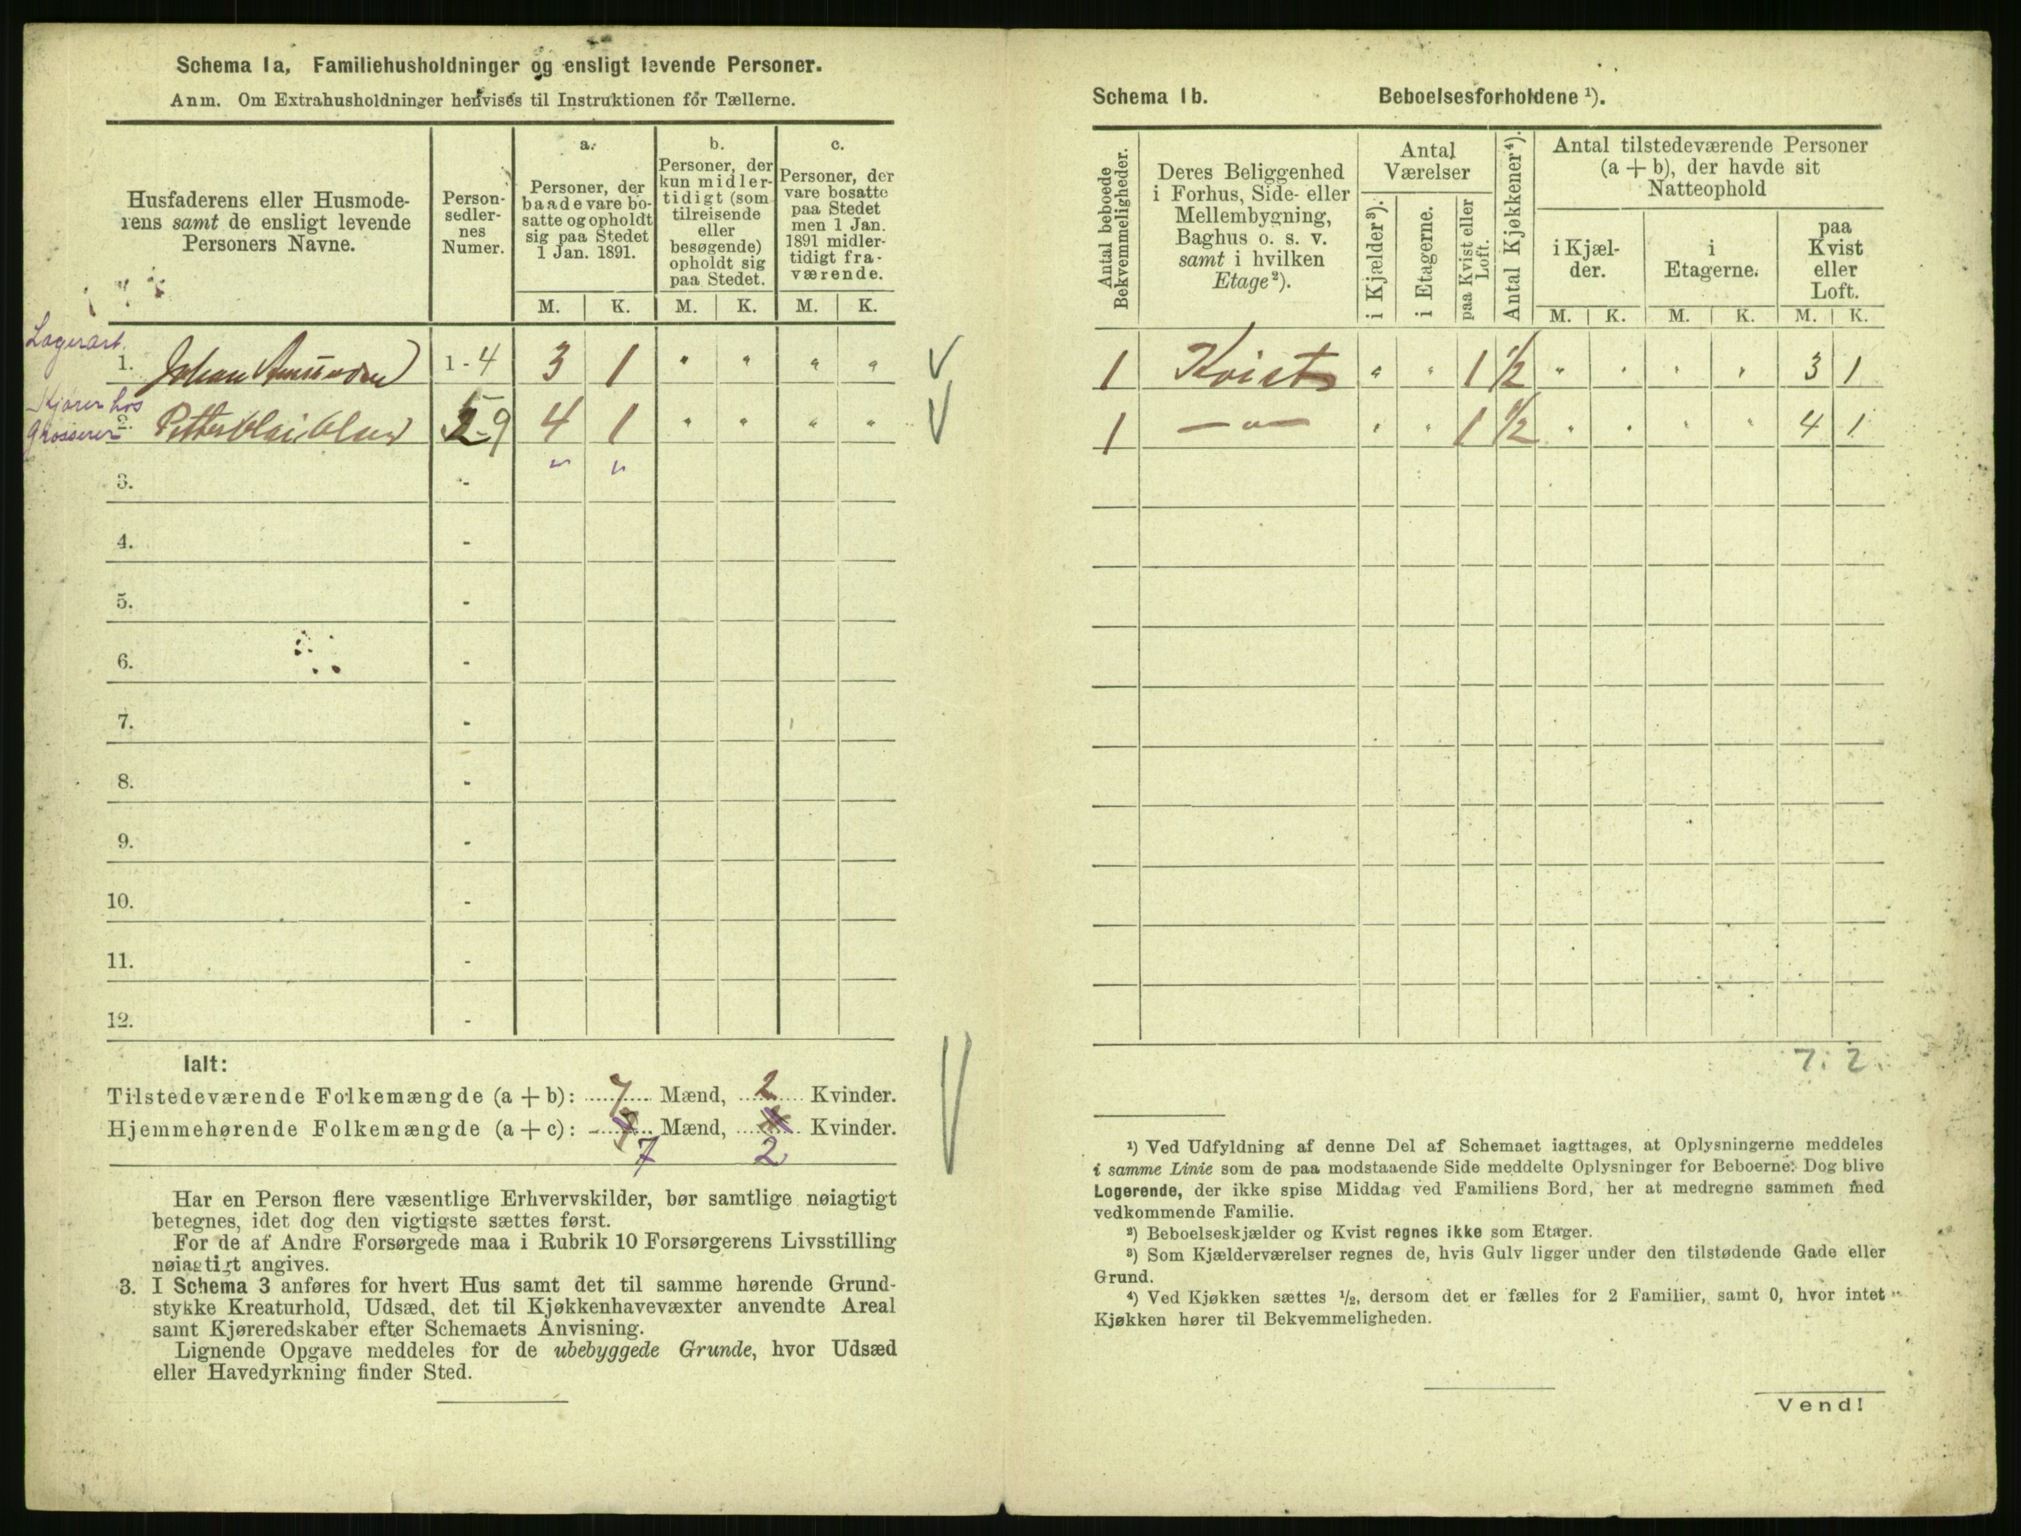 Schema 1a, Familiehusholdninger og ensligt levende Personer.
Anm. Om Extrahusholdninger henvises til Instruktionen for Tællerne.
Husfaderens eller Husmode-
rens samt de ensligt levende
Personers Navne.
Person-
sedler-
nes
Numer.
a.
Personer, der
baade vare bo-
satte og opholdt
sig paa Stedet
1 Jan. 1891.
b.
Personer, der
kun midler-
tidigt (som
tilreisende
eller
besøgende)
opholdt sig
paa Stedet.
c.
Personer, der
vare bosatte
paa Stedet
men 1 Jan.
1891 midler-
tidigt fra-
værende.
M. K. M. K. M. K.
Lagerarb.
1. Johan Amundsen 1-4 3 1 " " " "
Kjører hos
Grosserer 2. Petter 5-9 4 1 " " " "
3. - " "
4. -
5. -
6. -
7. -
8. -
9. -
10. -
11. -
12. -
Ialt:
Tilstedeværende Folkemængde (a + b): 7 Mænd, 2 Kvinder.
Hjemmehørende Folkemængde (a + c): Mænd, Kvinder.
7 2
Har en Person flere væsentlige Erhvervskilder, bør samtlige nøiagtigt
betegnes, idet dog den vigtigste sættes først.
For de af Andre Forsørgede maa i Rubrik 10 Forsørgerens Livsstilling
nøiagtigt angives.
3. I Schema 3 anføres for hvert Hus samt det til samme hørende Grund-
stykke Kreaturhold, Udsæd, det til Kjøkkenhavevæxter anvendte Areal
samt Kjøreredskaber efter Schemaets Anvisning.
Lignende Opgave meddeles for de ubebyggede Grunde, hvor Udsæd
eller Havedyrkning finder Sted.
Schema 1b. Beboelsesforholdene ¹).
Antal beboede
Bekvemmeligheder.
Deres Beliggenhed
i Forhus, Side- eller
Mellembygning,
Baghus o. s. v.
samt i hvilken
Etage ²).
Antal
Værelser
i Kjælder ³).
i Etagerne.
paa Kvist eller
Loft.
Antal Kjøkkener ⁴).
Antal tilstedeværende Personer
(a + b), der havde sit
Natteophold
i Kjæl-
der.
i
Etagerne.
paa
Kvist
eller
Loft.
M. K. M. K. M. K.
1 Kvist " " 1 1/2 " " " " 3 1
1 — " — " " 1 1/2 " " " " 4 1
7. 2.
¹) Ved Udfyldning af denne Del af Schemaet iagttages, at Oplysningerne meddeles
i samme Linie som de paa modstaaende Side meddelte Oplysninger for Beboerne. Dog blive
Logerende, der ikke spise Middag ved Familiens Bord, her at medregne sammen med
vedkommende Familie.
²) Beboelseskjælder og Kvist regnes ikke som Etager.
³) Som Kjælderværelser regnes de, hvis Gulv ligger under den tilstødende Gade eller
Grund.
⁴) Ved Kjøkken sættes ½, dersom det er fælles for 2 Familier, samt 0, hvor intet
Kjøkken hører til Bekvemmeligheden.
Vend!